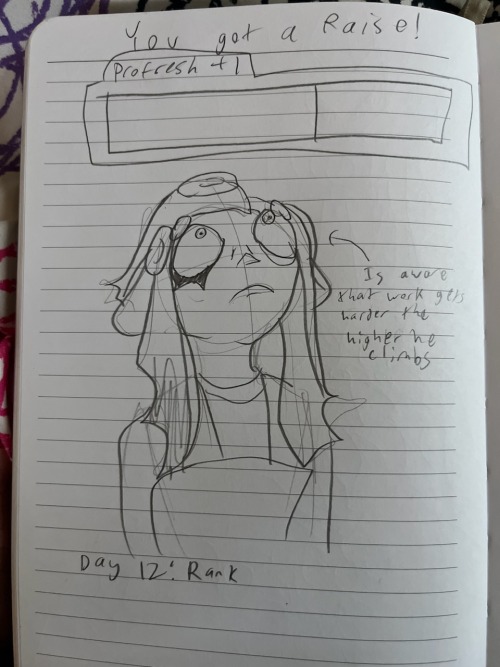 You got a Raise!
Profresh +1
Is aware
that work gets
harder the
higher he
climbs
Day 12: Rank